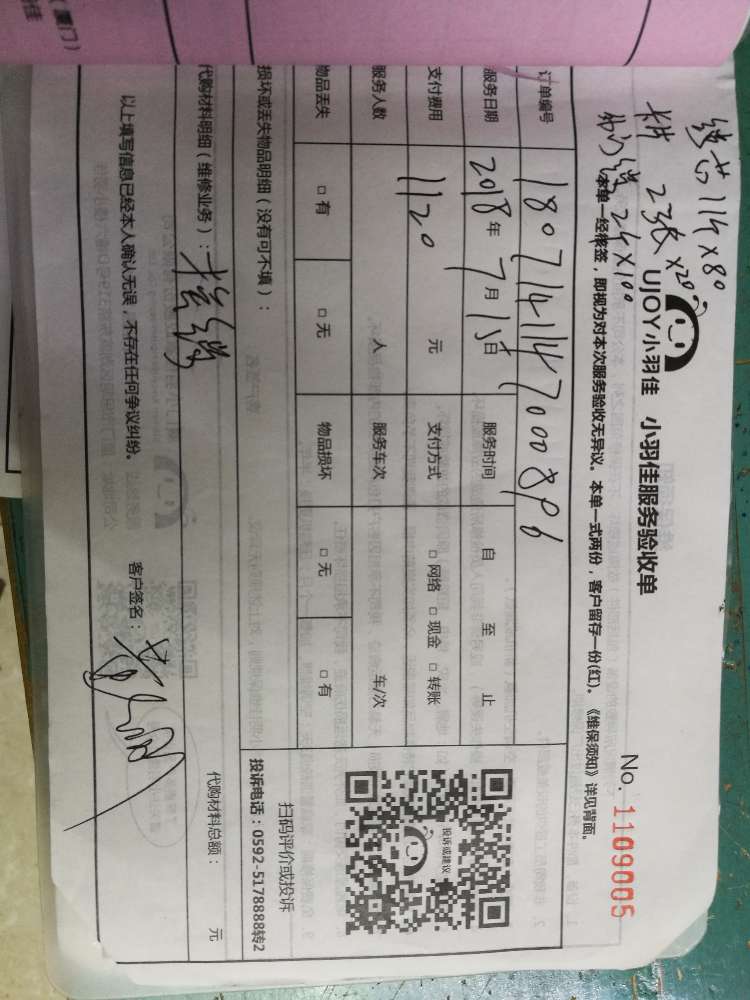 UJOY小羽佳 小羽佳服务验收单
No. 1109005
本单一经核签，即视为对本次服务验收无异议。本单一式两份，客户留存一份(红)。《维保须知》详见背面。
114×80
23张×20
24×100
订单编号 1807141147000896
服务日期 2018年7月15日 服务时间 自 至 止
支付费用 1120 元 支付方式 □网络 □现金 □转账
服务人数 人 服务车次 车/次
物品丢失 □有 □无 物品损坏 □无 □有
损坏或丢失物品明细（没有可不填）：
投诉或建议
扫码评价或投诉
投诉电话：0592-5178888转2
代购材料明细（维修业务）：
代购材料总额： 元
以上填写信息已经本人确认无误，不存在任何争议纠纷。 客户签名：
（厦门）